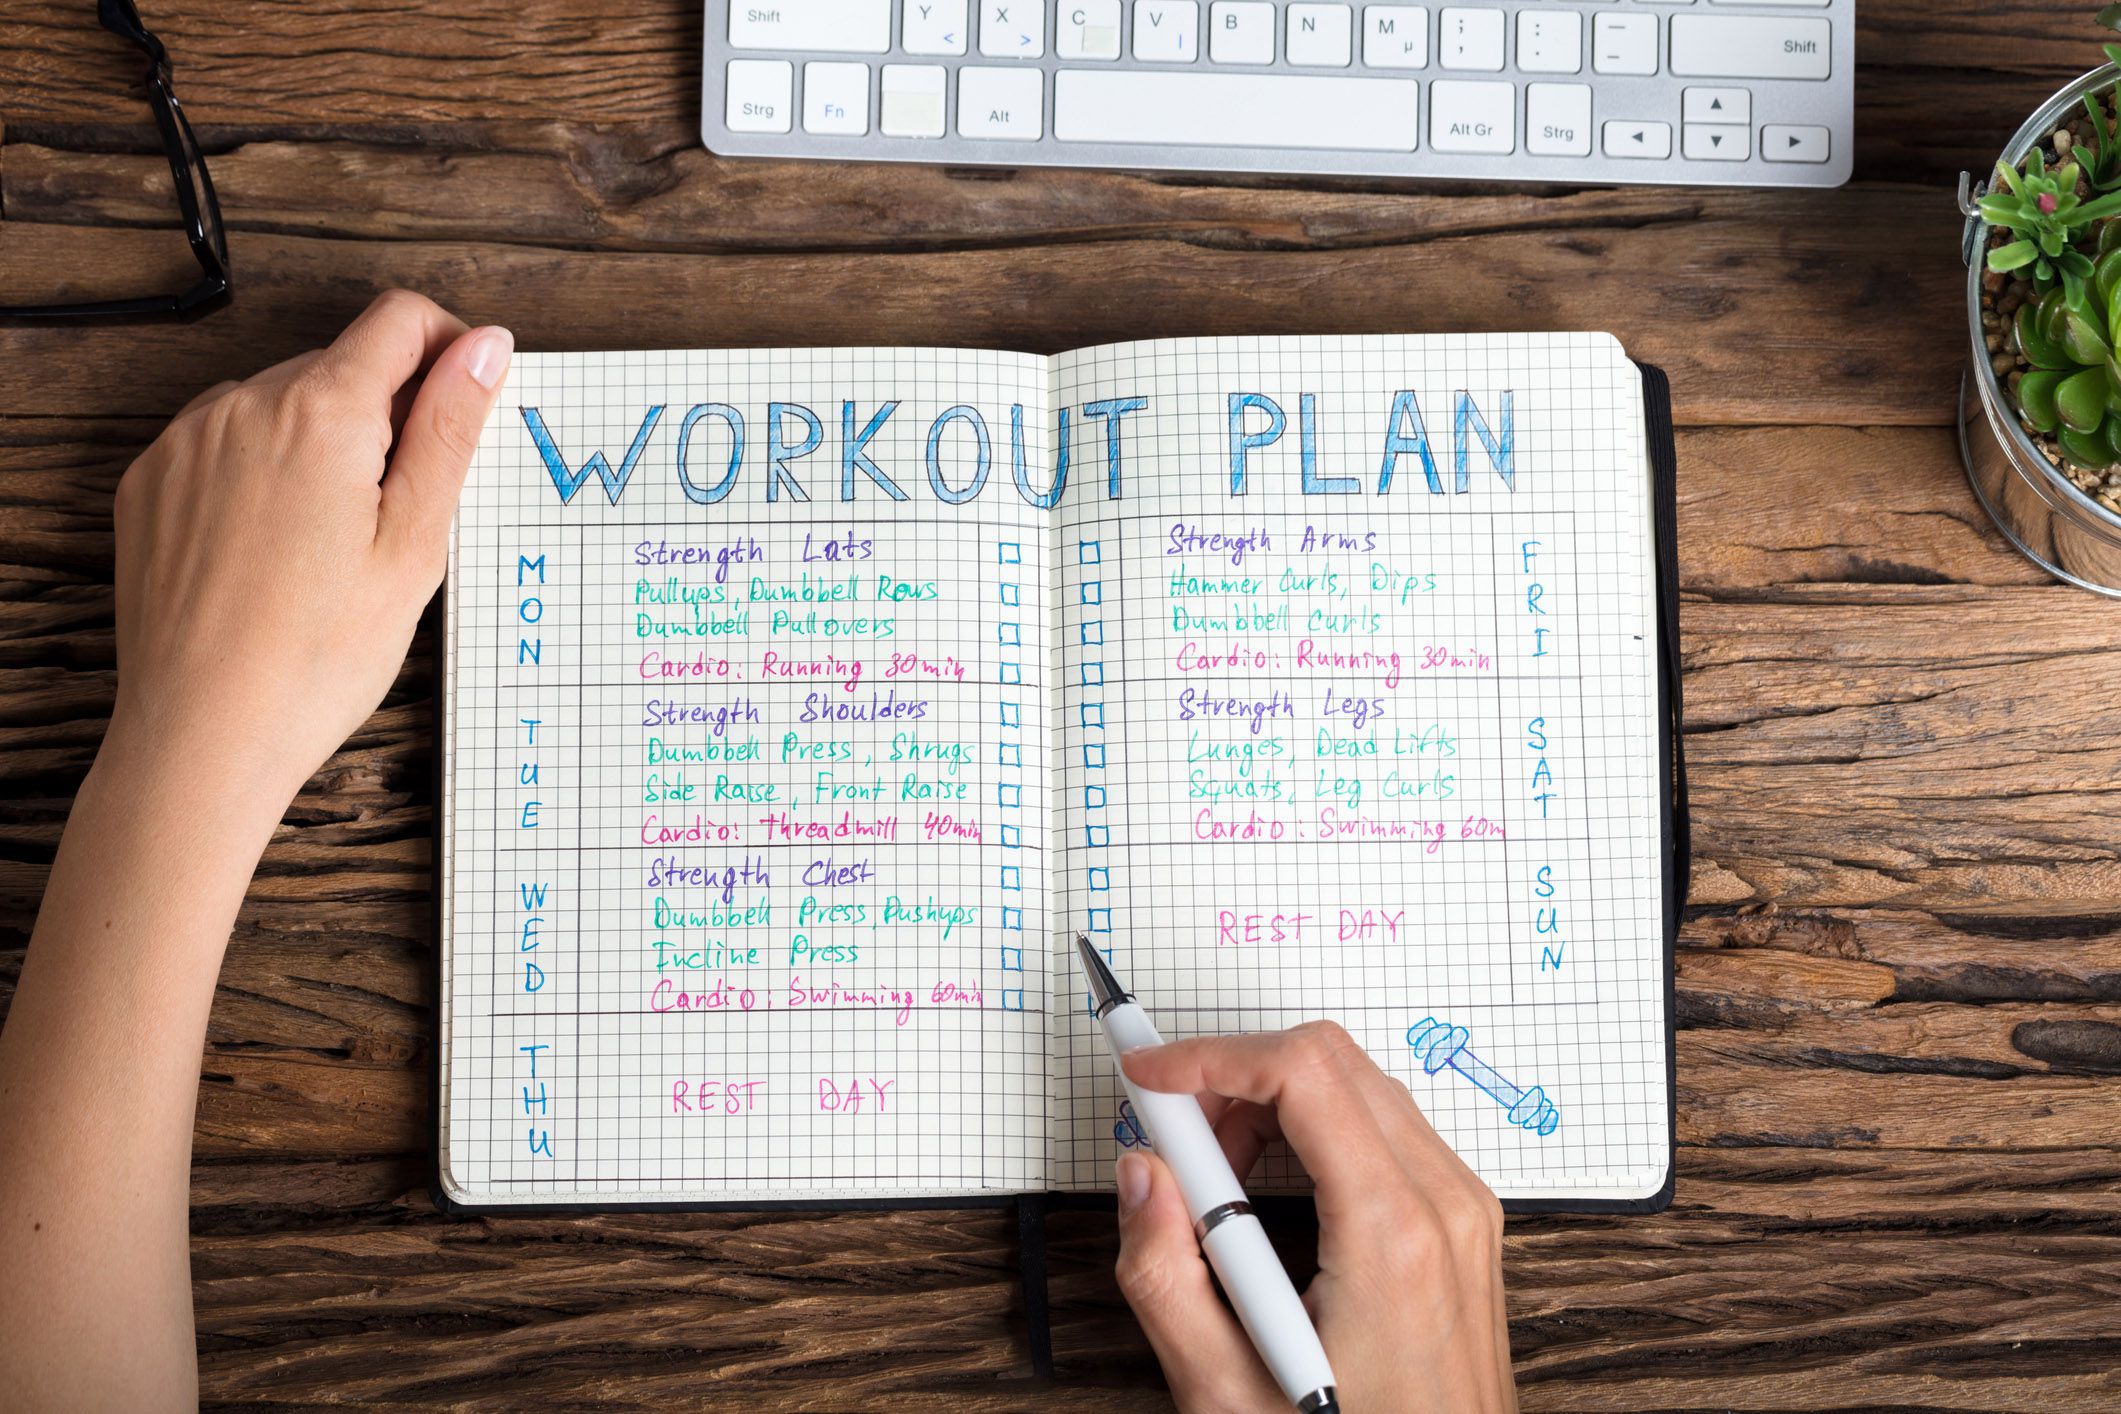 Shift Y X C V B N M ; : — Shift
< > | µ , . _
Strg Fn Alt Alt Gr Strg
WORKOUT PLAN
MON
Strength Lats
Pullups, Dumbbell Rows
Dumbbell Pullovers
Cardio: Running 30min
TUE
Strength Shoulders
Dumbbell Press, Shrugs
Side Raise, Front Raise
Cardio: threadmill 40min
WED
Strength Chest
Dumbbell Press, Pushups
Incline Press
Cardio: Swimming 60min
THU
REST DAY
Strength Arms
FRI
Hammer Curls, Dips
Dumbbell Curls
Cardio: Running 30min
Strength Legs
SAT
Lunges, Dead Lifts
Squats, Leg Curls
Cardio: Swimming 60m
SUN
REST DAY